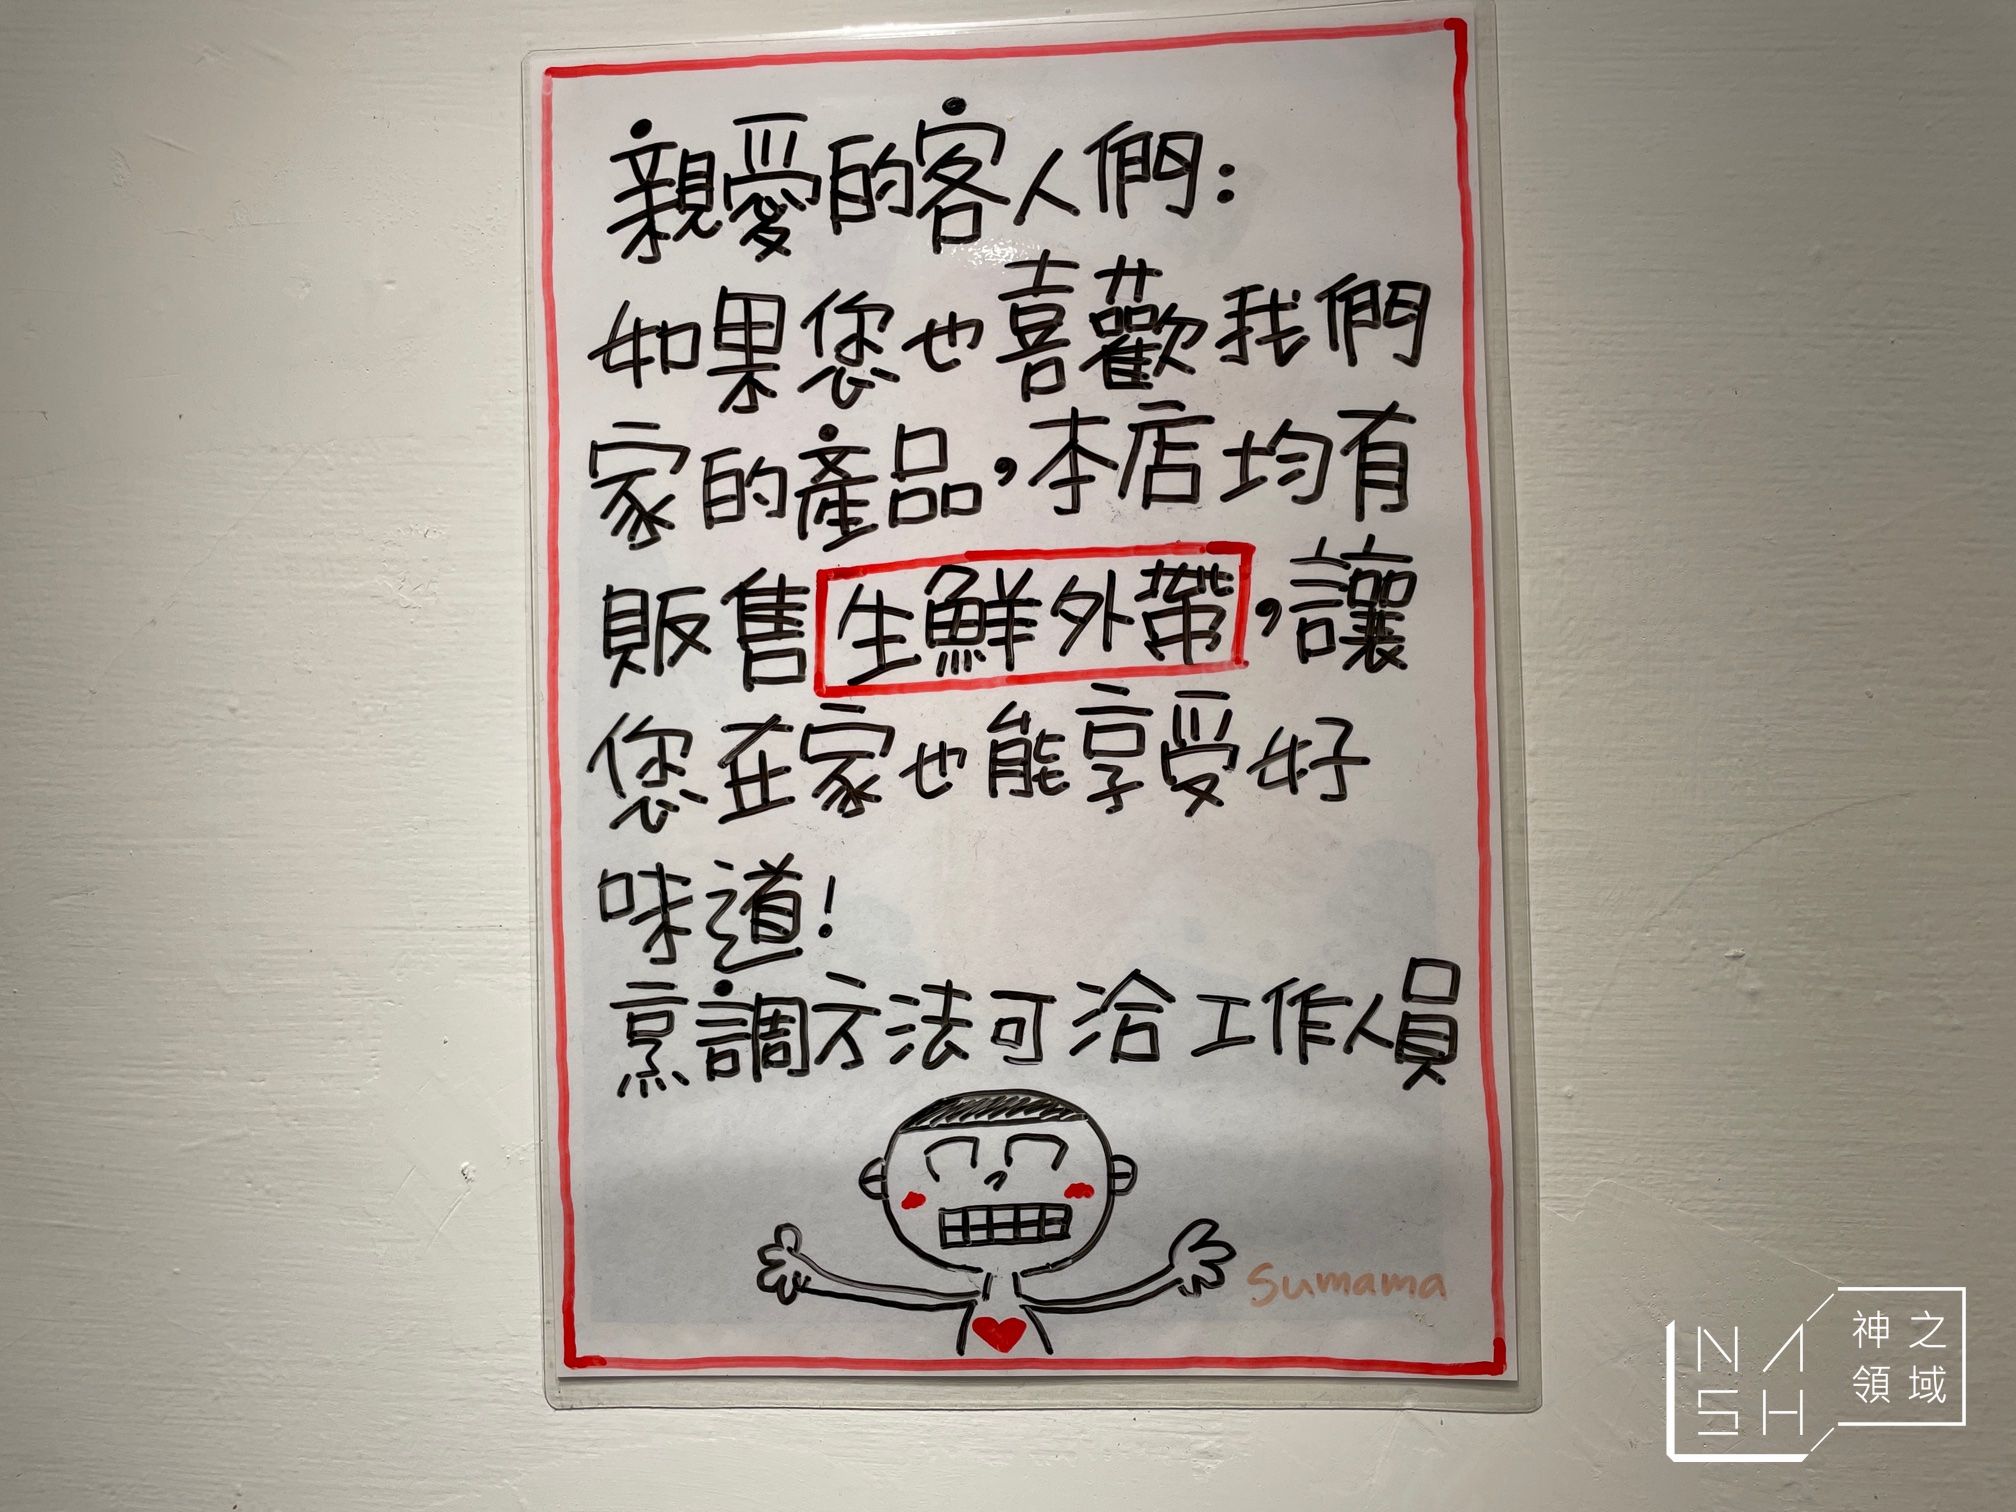 親愛的客人們：
如果您也喜歡我們
家的產品，本店均有
販售生鮮外帶，讓
您在家也能享受好
味道！
烹調方法可洽工作人員
Sumama
NASH
神之
領域